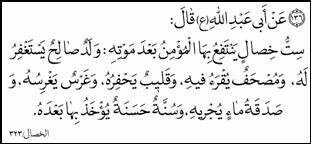 ﴿١٣٦﴾ عَنْ أَبی عَبْدِ اللهِ (ع) قالَ:
سِتُّ خِصالٍ یَنْتَفِعُ بِهَا الْمُؤْمِنُ بَعْدَ مَوْتِهِ: وَلَدٌ صالِحٌ یَسْتَغْفِرُ
لَهُ، وَمُصْحَفٌ یُقْرَءُ فیهِ، وَقَلیبٌ یَحْفِرُهُ، وَغَرْسٌ یَغْرِسُهُ، وَ
صَدَقَةُ ماءٍ یُجْریهِ، وَسُنَّةٌ حَسَنَةٌ یُؤْخَذُ بِها بَعْدَهُ.
الخصال/ ٣٢٣